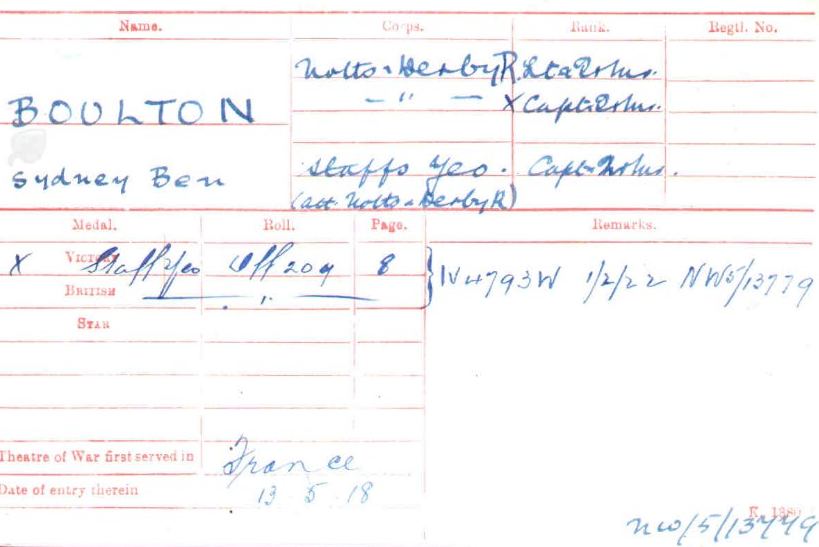 Name. Corps. Rank. Regtl. No.
Notts & Derby R. Lt & Qrmr.
BOULTON — " — X Capt & Qrmr.
Sydney Ben Staffs Yeo. Capt & Qrmr.
(att Notts & Derby R)
Medal. Roll. Page. Remarks.
X VICTORY Staffs Yeo Off 209 8 } IV 4793W 1/2/22 NW5/13779
BRITISH — " —
STAR
Theatre of War first served in France
Date of entry therein 13 5 18
K. 1380
NW/5/13779